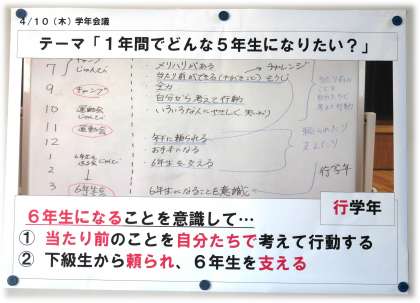 4/10（木）学年会議
テーマ「１年間でどんな５年生になりたい？」
・メリハリがある
チャレンジ
7
・当たり前ができる
9
キャンプ
・全力
・自分から考えて行動
10
運動会
11
運動会
12
・年下に頼られる
・お手本になる
1
・6年生を支える
2
行学年
3
6年生を
6年生になることを意識
６年生になることを意識して…
行学年
① 当たり前のことを自分たちで考えて行動する
② 下級生から頼られ、６年生を支える